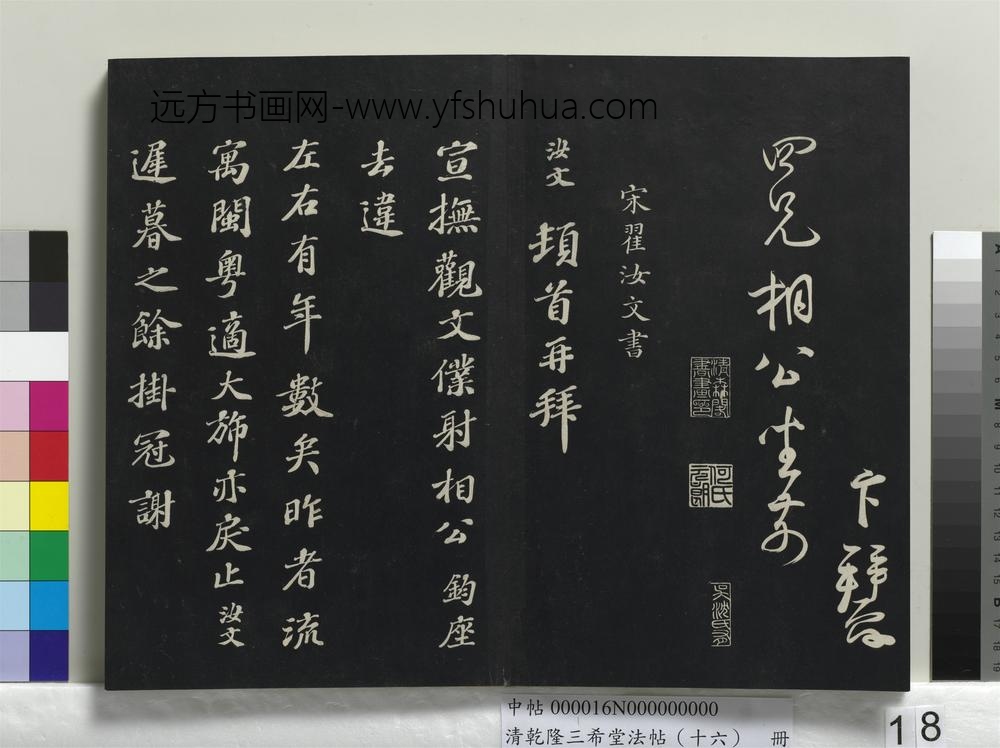 卞
四兄相公坐前
清森閣書畫印
何氏元朗
宋翟汝文書
汝文 頓首再拜
宣撫觀文僕射相公 鈞座
去違
左右有年 數矣昨者流
寓閩粵適大斾亦戾止汝文
遲暮之餘掛冠謝
远方书画网-www.yfshuhua.com
中帖 000016N000000000
清乾隆三希堂法帖（十六） 冊
18